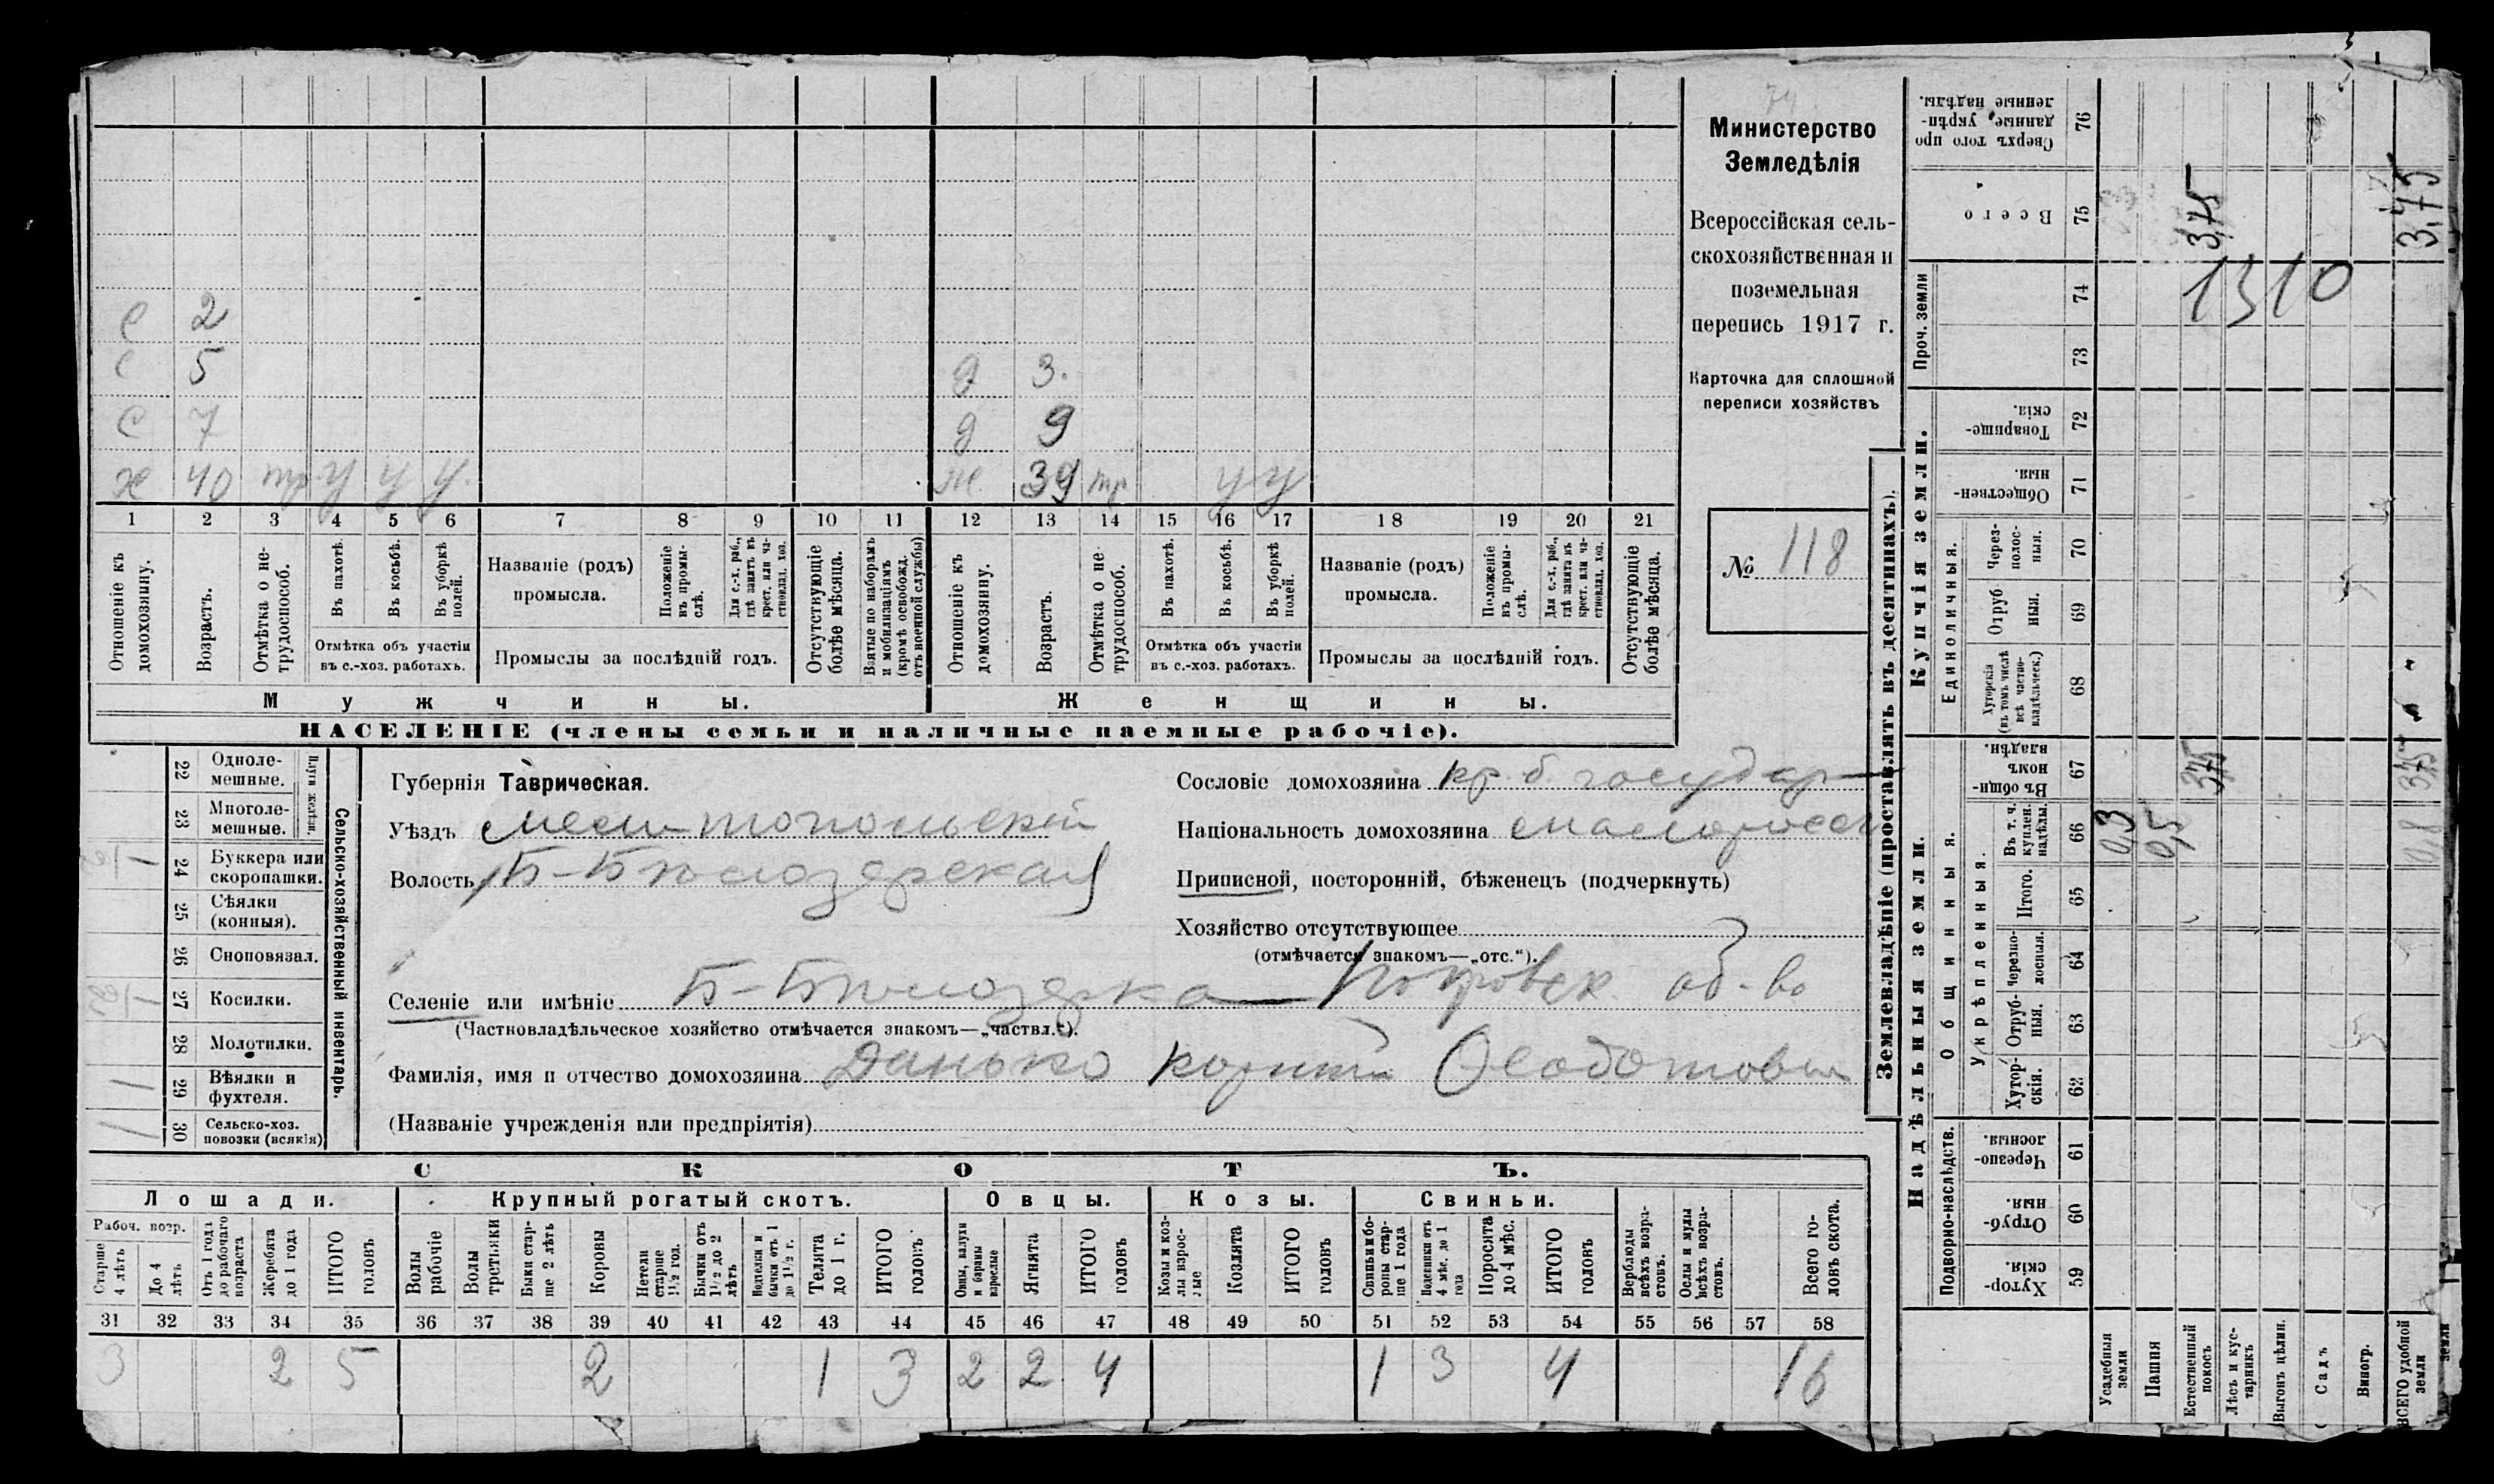 Министерство
Земледѣлія
Всероссійская сель-
скохозяйственная и
поземельная
перепись 1917 г.
Карточка для сплошной
переписи хозяйствъ
№ 118
с 2
с 5 д 3.
с 7 д 9
х 40 тр у у у. ж 39 тр у у
1 2 3 4 5 6 7 8 9 10 11 12 13 14 15 16 17 18 19 20 21
Отношеніе къ домохозяину.
Возрастъ.
Отмѣтка о не-трудоспособ.
Въ пахотѣ.
Въ косьбѣ.
Въ уборкѣ полей.
Отмѣтка объ участіи
въ с.-хоз. работахъ.
Названіе (родъ)
промысла.
Положеніе въ промы-слѣ.
Для с.-х. раб., гдѣ занятъ въ крест. или ча-стновлад. хоз.
Промыслы за послѣдній годъ.
Отсутствующіе болѣе мѣсяца.
Взятые по наборамъ и мобилизаціямъ (кромѣ освобожд. отъ военной службы)
Отношеніе къ домохозяину.
Возрастъ.
Отмѣтка о не-трудоспособ.
Въ пахотѣ.
Въ косьбѣ.
Въ уборкѣ полей.
Отмѣтка объ участіи
въ с.-хоз. работахъ.
Названіе (родъ)
промысла.
Положеніе въ промы-слѣ.
Для с.-х. раб., гдѣ занята въ крест. или ча-стновлад. хоз.
Промыслы за послѣдній годъ.
Отсутствующіе болѣе мѣсяца.
Мужчины. Женщины.
НАСЕЛЕНІЕ (члены семьи и наличные наемные рабочіе).
Сельско-хозяйственный инвентарь.
Плуги желѣзн.
22 Одноле-мешные.
23 Многоле-мешные.
24 Буккера или скоропашки.
25 Сѣялки (конныя).
26 Сноповязал.
27 Косилки.
28 Молотилки.
29 Вѣялки и фухтеля. 1
30 Сельско-хоз. повозки (всякія) 1
Губернія Таврическая.
Уѣздъ Мелитопольскій
Волость Б-Бѣлозерская
Сословіе домохозяина кр. б. государ
Національность домохозяина малорос
Приписной, посторонній, бѣженецъ (подчеркнуть)
Хозяйство отсутствующее
(отмѣчается знакомъ—„отс.“).
Селеніе или имѣніе Б-Бѣлозерка Покровск. об-во
(Частновладѣльческое хозяйство отмѣчается знакомъ—„частвл.“).
Фамилія, имя и отчество домохозяина Данько
(Названіе учрежденія или предпріятія)
СКОТЪ.
Лошади. Крупный рогатый скотъ. Овцы. Козы. Свиньи.
Рабоч. возр.
Старше 4 лѣтъ
До 4 лѣтъ
Отъ 1 года до рабочаго возраста
Жеребята до 1 года
ИТОГО головъ
Волы рабочіе
Волы третьяки
Быки стар-ше 2 лѣтъ
Коровы
Нетели старше 1½ год.
Бычки отъ 1½ до 2 лѣтъ
Подтелки и бычки отъ 1 до 1½ г.
Телята до 1 г.
ИТОГО головъ
Овцы, валухи и бараны взрослые
Ягнята
ИТОГО головъ
Козы и коз-лы взрос-лые
Козлята
ИТОГО головъ
Свиньи и бо-ровы стар-ше 1 года
Подсвинки отъ 4 мѣс. до 1 года
Поросята до 4 мѣс.
ИТОГО головъ
Верблюды всѣхъ возра-стовъ.
Ослы и мулы всѣхъ возра-стовъ.
Всего го-ловъ скота.
31 32 33 34 35 36 37 38 39 40 41 42 43 44 45 46 47 48 49 50 51 52 53 54 55 56 57 58
3 2 5 2 1 3 2 2 4 1 3 4 16
Землевладѣніе (проставлять въ десятинахъ).
Надѣльныя земли.
Купчія земли.
Проч. земли
Подворно-наслѣдств.
Общинныя.
Укрѣпленныя.
Единоличныя.
59 Хутор-скія.
60 Отруб-ныя.
61 Черезпо-лосныя.
62 Хутор-скія.
63 Отруб-ныя.
64 Черезпо-лосныя.
65 Итого.
66 Въ т. ч. куплен. надѣлы.
67 Въ общи-номъ владѣн.
68 Хуторскія (въ томъ числѣ всѣ частно-владѣльческ.)
69 Отруб-ныя.
70 Через-полос-ныя.
71 Обществен-ныя.
72 Товарище-скія.
73
74
75 Всего
76 Сверхъ того про-данные укрѣп-ленные надѣлы.
Усадебныя земли 0,3
Пашня 0,5
Естественный покосъ 3,75 3,75
Лѣсъ и кус-тарникъ
Выгонъ цѣлин.
Садъ
Виногр.
ВСЕГО удобной земли 0,8 3,75 3,75
земли
1310